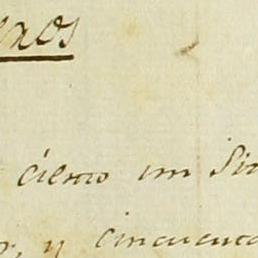 exos
ciento un Si
y cincuenta